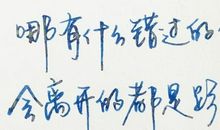 哪有什么错过的
会离开的都是路